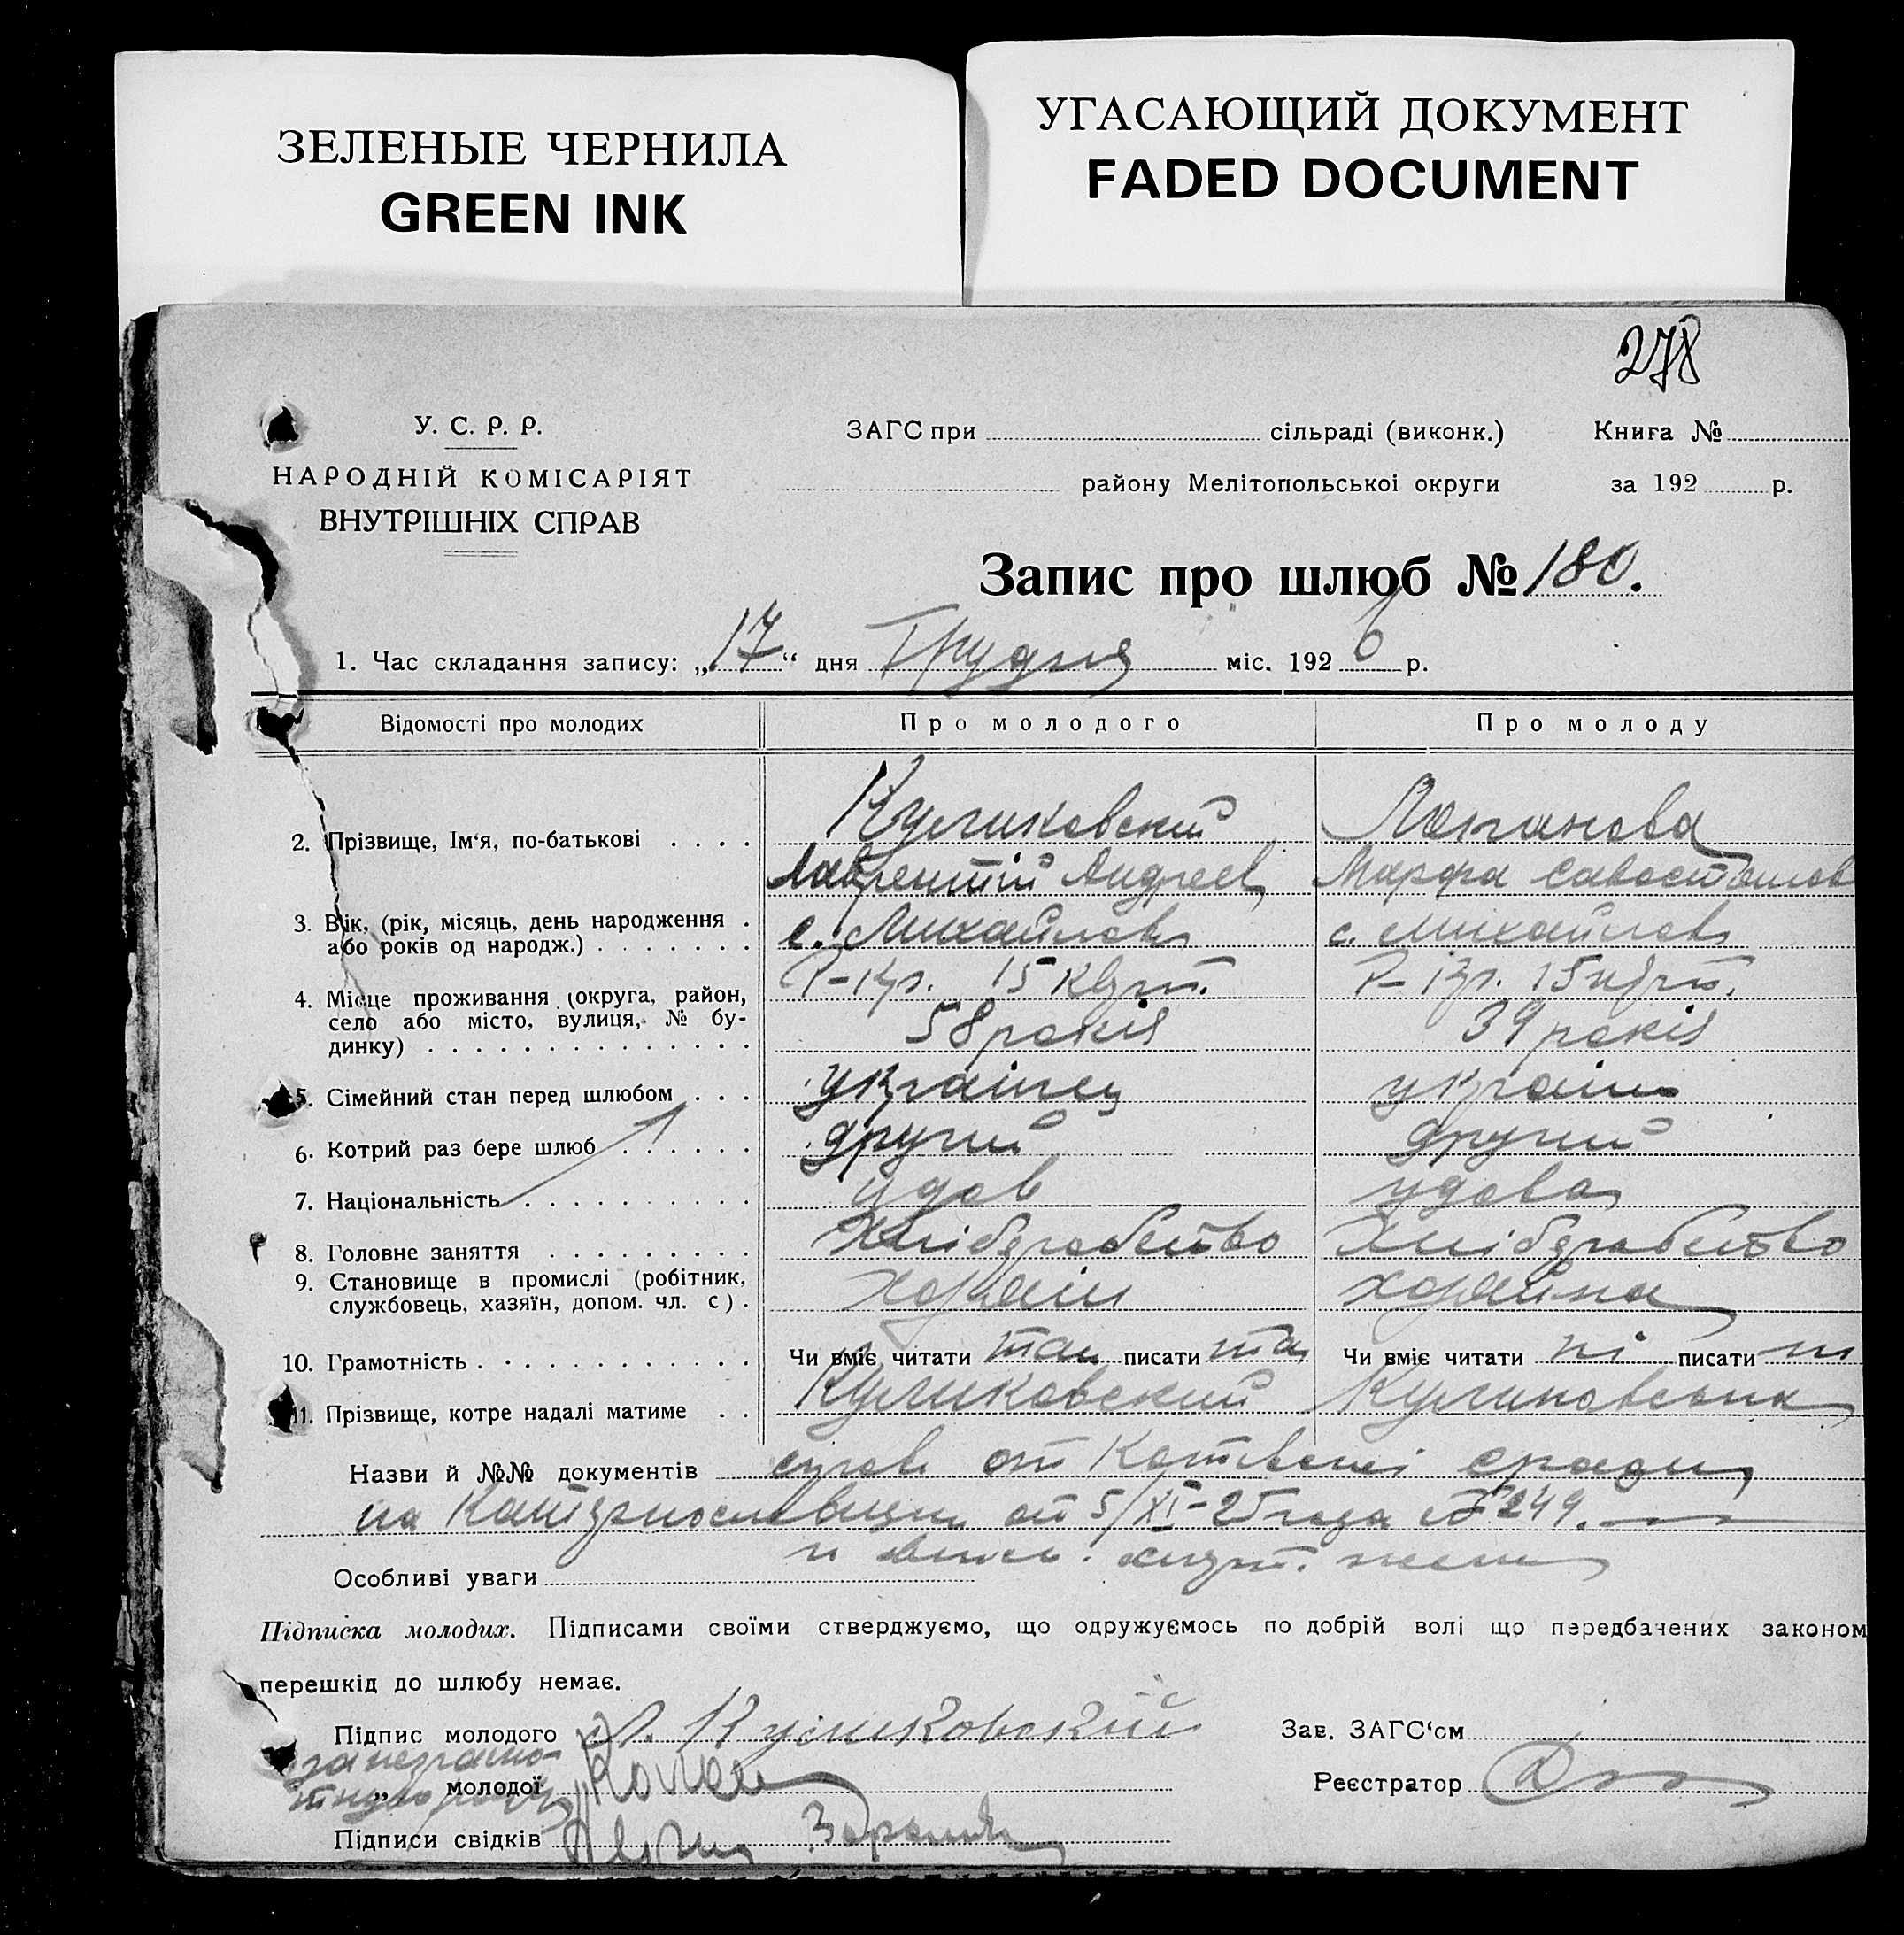 ЗЕЛЕНЫЕ ЧЕРНИЛА
GREEN INK
УГАСАЮЩИЙ ДОКУМЕНТ
FADED DOCUMENT
278
У. С. Р. Р.
НАРОДНІЙ КОМІСАРІЯТ
ВНУТРІШНІХ СПРАВ
ЗАГС при сільраді (виконк.) Книга №
району Мелітопольської округи за 192 р.
Запис про шлюб № 180.
1. Час складання запису: „17“ дня Грудня міс. 1926 р.
Відомості про молодих Про молодого Про молоду
2. Прізвище, Ім‘я, по-батькові Куликовский
Лаврентий Андреев Марфа
3. Вік, (рік, місяць, день народження с. Михайлов с. Михайлов
або років од народж.) 15 15
4. Місце проживання (округа, район,
село або місто, вулиця, № бу- 58 років 39 років
динку)
5. Сімейний стан перед шлюбом українец україн
6. Котрий раз бере шлюб другий другий
7. Національність удов удова
8. Головне заняття Хлібдрабство Хлібдрабство
9. Становище в промислі (робітник,
службовець, хазяїн, допом. чл. с). хозяин хозяйка
10. Грамотність Чи вміє читати так писати так Чи вміє читати ні писати ні
11. Прізвище, котре надалі матиме Куликовский Куликовська
Назви й №№ документів от
на от 5/XI-25 года № 249.
Особливі уваги
Підписка молодих. Підписами своїми стверджуємо, що одружуємось по добрій волі що передбачених законом
перешкід до шлюбу немає.
Підпис молодого Л. Куликовский Зав. ЗАГС‘ом
за неграмо-
„ молодої Реєстратор
Підписи свідків